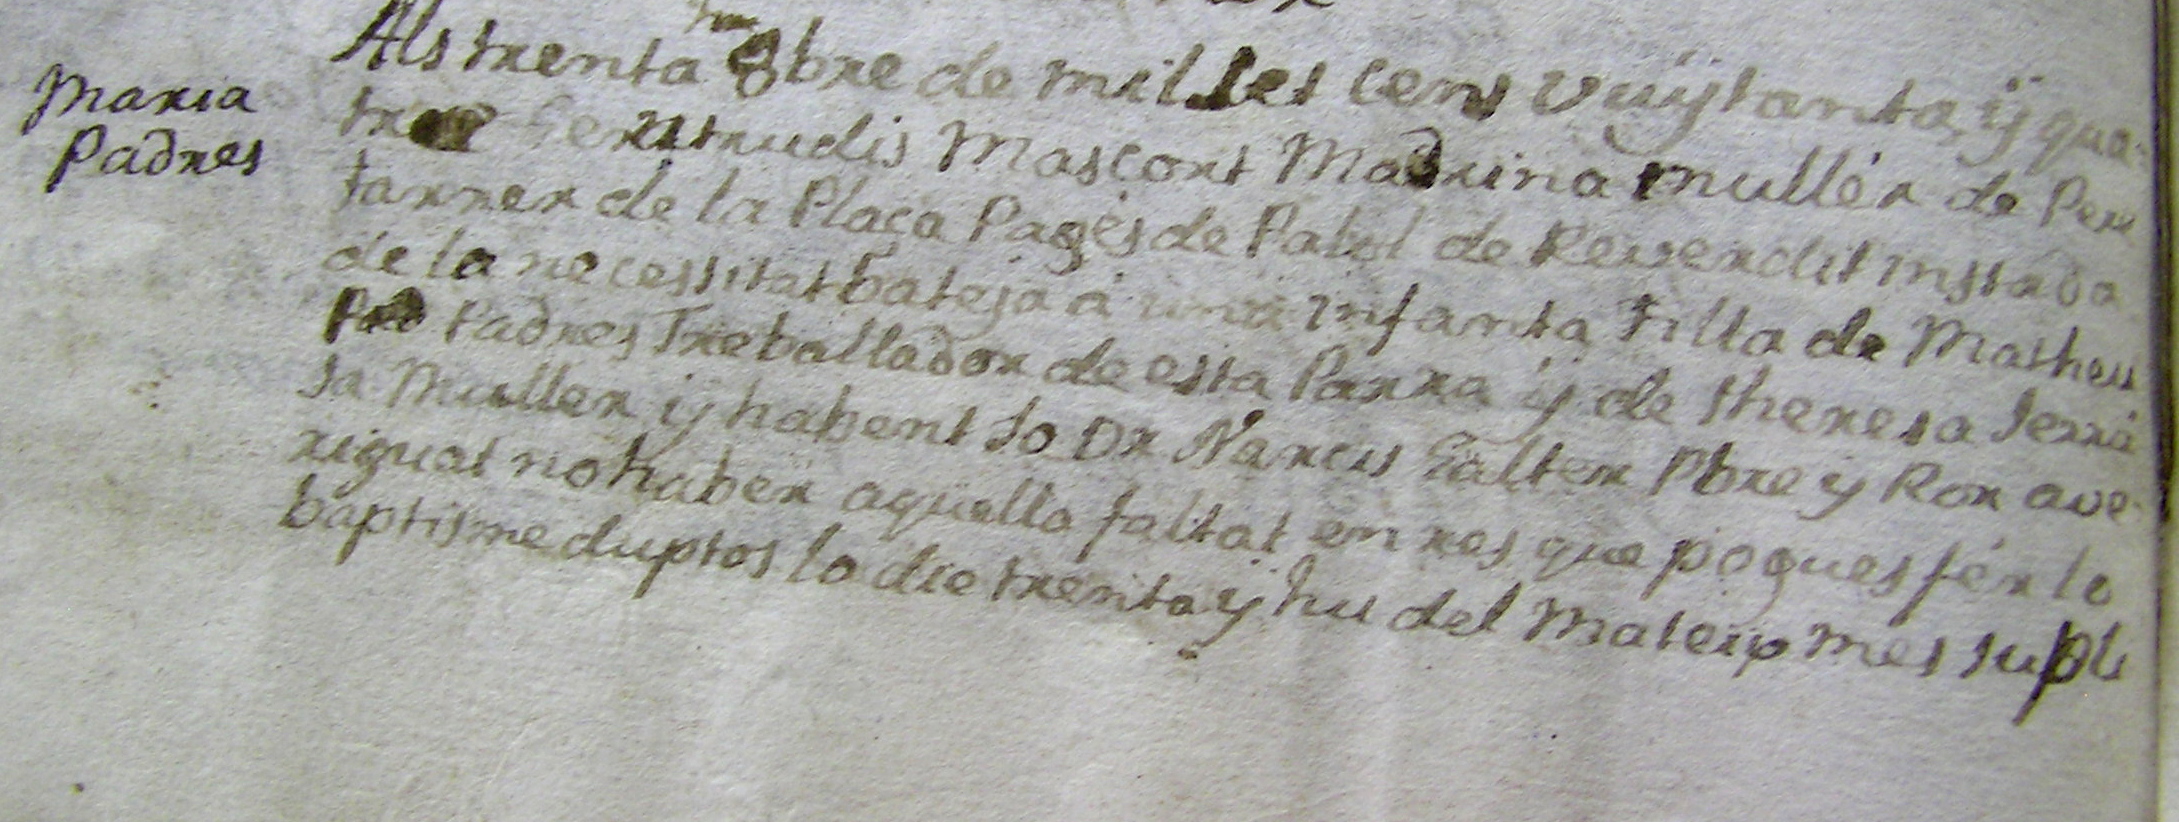 Maria
Padres
Als trenta 8bre de mil ses cens vuÿtanta, ÿ qua-
tre Gertrudis Mascort Madrina mullér de Pere
farrer de la Plaça Pagès de Pabol de Reverdit instada
de la necessitat bateja á una infanta filla de Matheu
Padres Treballador de esta Parra ÿ de theresa serra
sa Muller ÿ habent lo Dr Narcis Galter Pbre y Ror ave-
riguat no haber aquella faltat en res que pogues fér lo
baptisme duptos lo die trenta y hu del Mateip mes supli